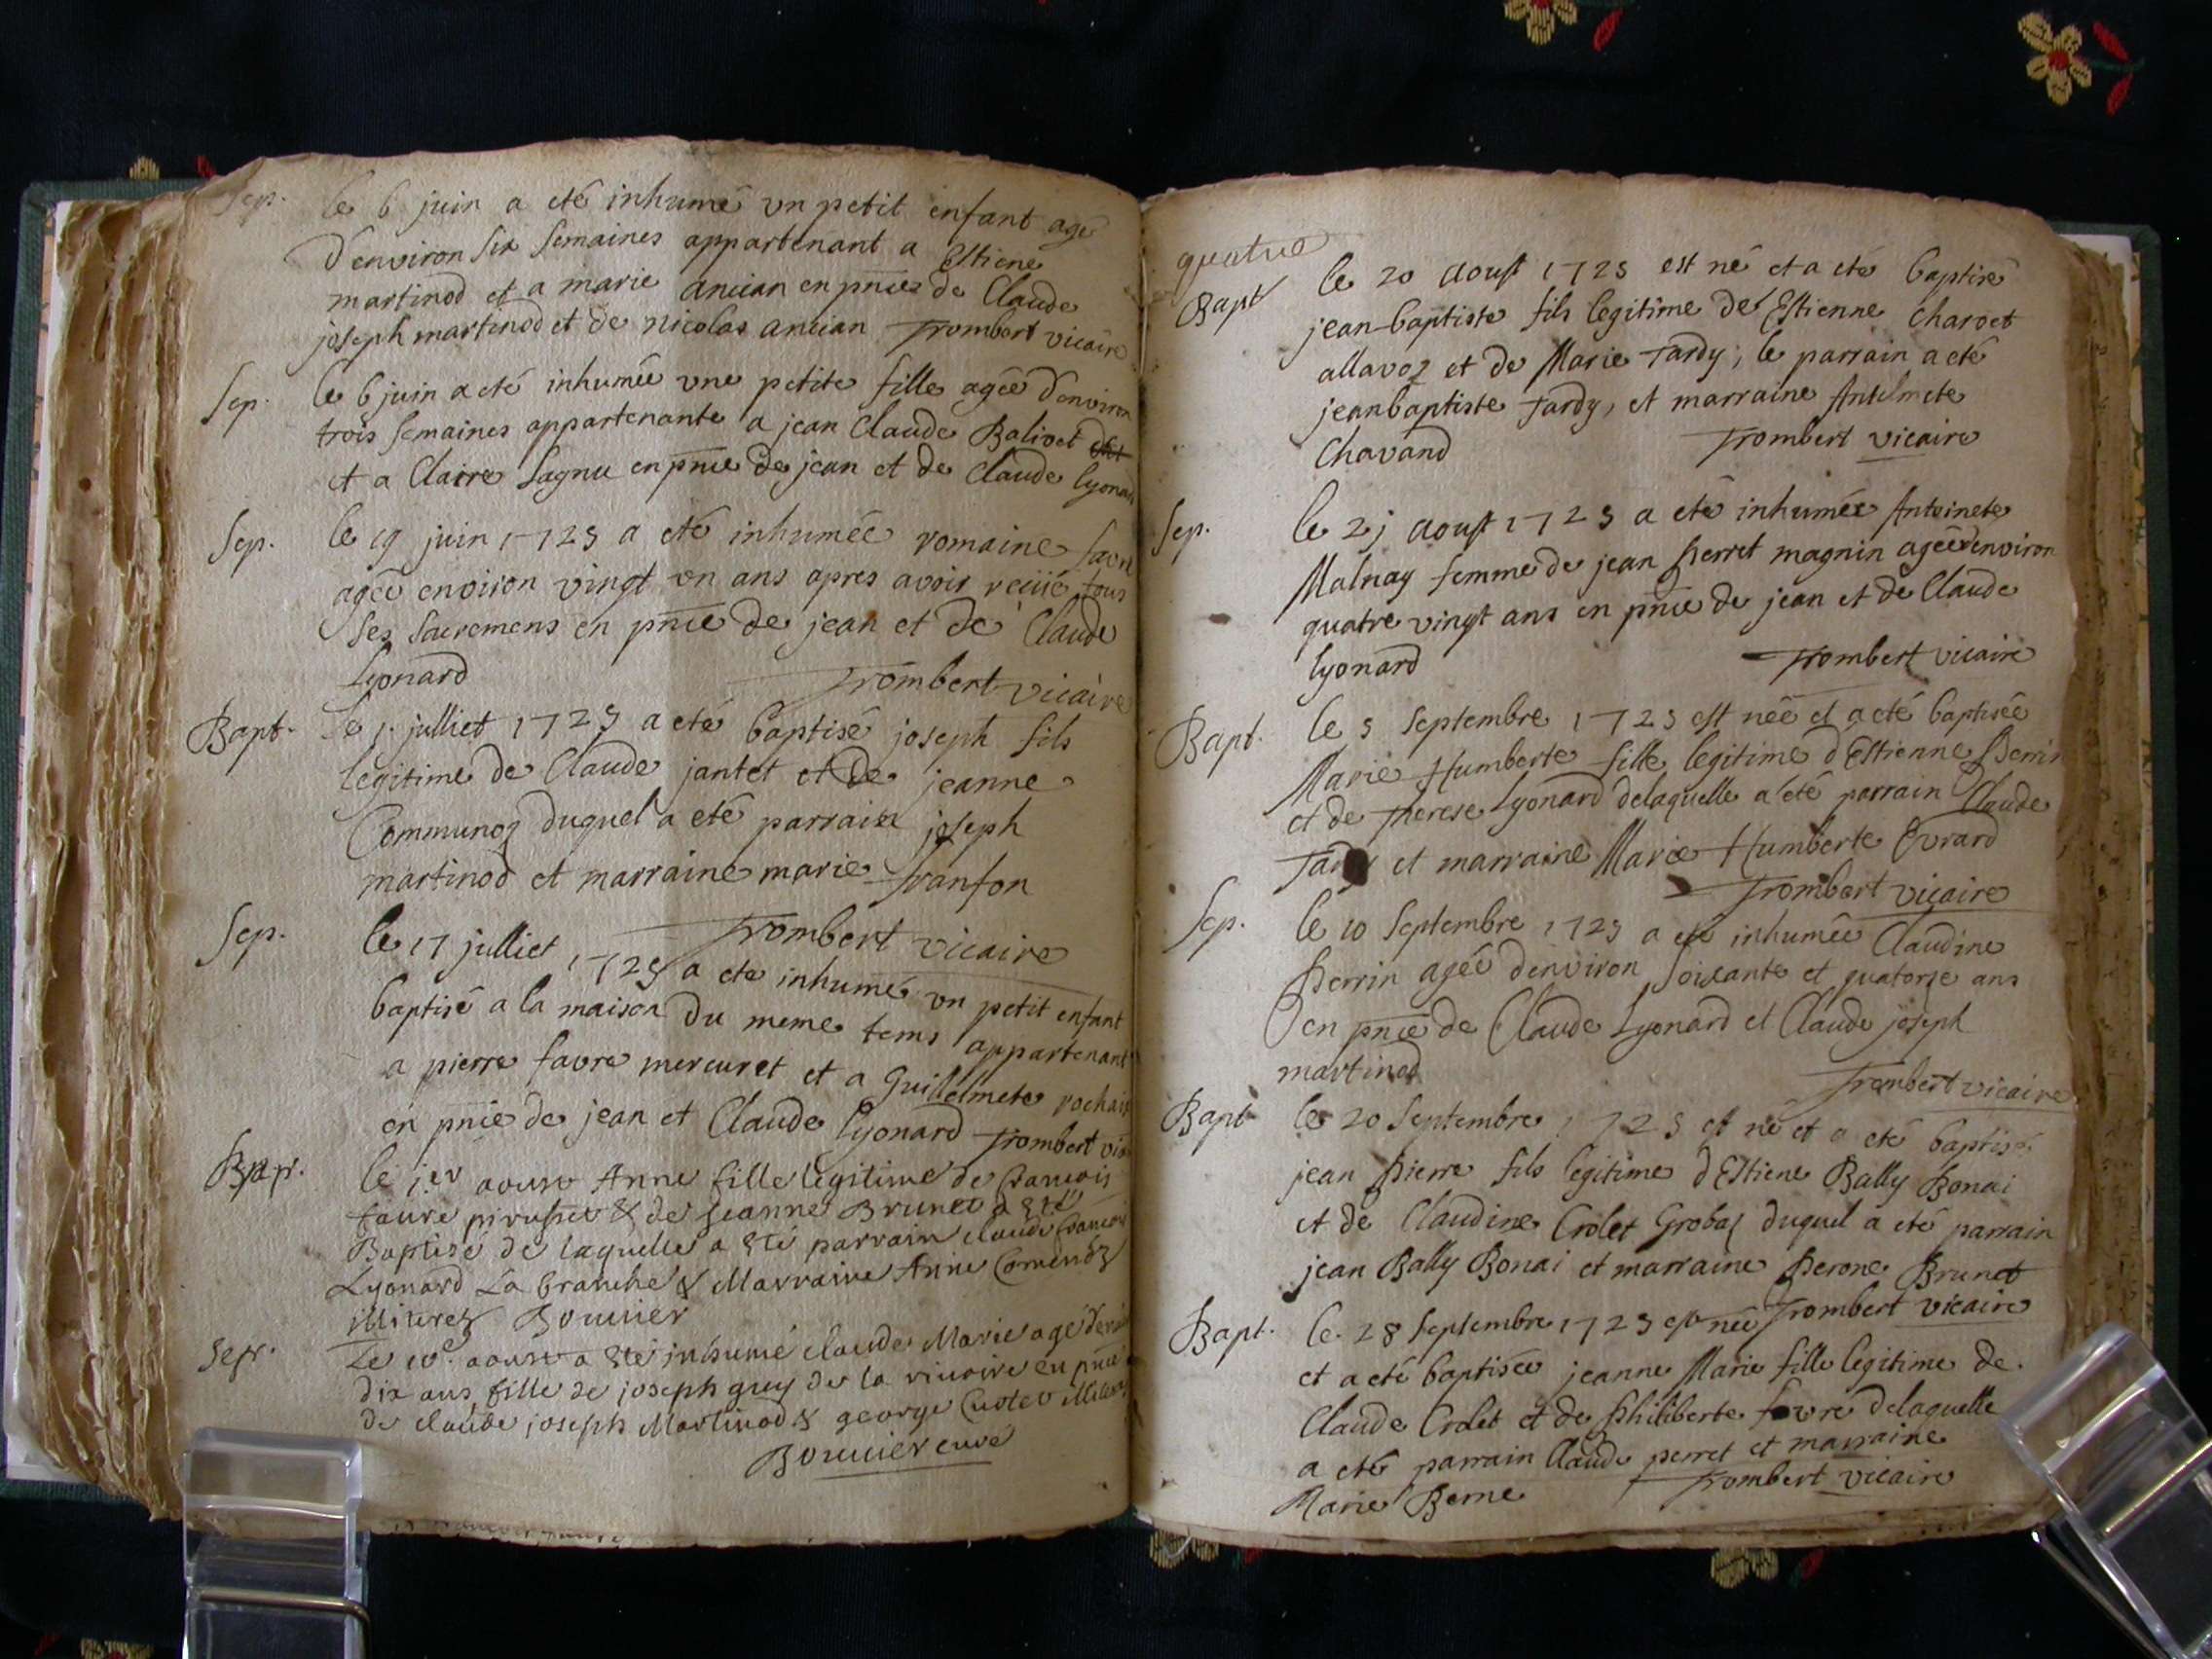 Sep. le 6 juin a eté inhumé un petit enfant agé
d'environ six semaines appartenant a Estiene
martinod et a marie ancian en pñce de Claude
joseph martinod et de nicolas ancian Trombert vicaire
Sep. le 6 juin a eté inhumée une petite fille agée d'environ
trois semaines appartenante a jean Claude Balivet
et a Claire Lagnu en pñce de jean et de Claude lyonard
Sep. le 19 juin 1723 a eté inhumée romaine favre
agée environ vingt un ans apres avoir reciié tous
ses sacremens en pñce de jean et de Claude
Lyonard Trombert vicaire
Bapt. Le 1. julliet 1723 a eté baptisé joseph fils
legitime de Claude jantet et de jeanne
Communoz duquel a eté parrain joseph
martinod et marraine marie franson
Trombert vicaire
Sep. le 17 julliet 1723 a ete inhumé un petit enfant
baptisé a la maison du meme tems appartenant
a pierre favre mercuret et a Guillelmete rochaix
en pñce de jean et Claude Lyonard Trombert vic
Bapt. le j.er aoust Anne fille legitime de francois
faure pirusset & de Jeanne Brunet a Eté
Baptisé de laquelle a Eté parrain claude francois
Lyonard La branche & Marraine Anne Comendz
illiterez Bouvier
Sepr. Le 10e. aoust a Eté inhumé claude Marie agé d'environ
dix ans fille de joseph guy de la rivoire en pñce
de claude joseph Martinod & george Curtet illiterez
Bouvier curé
quatre
Bapt le 20 aoust 1723 est né et a eté baptisé
jean-baptiste fils legitime de Estienne charvet
allavoz et de Marie Tardy; le parrain a eté
jeanbaptiste Tardy, et marraine Antelmete
Chavand Trombert vicaire
Sep. le 2j aoust 1723 a eté inhumée Antoinete
Malnay femme de jean perret magnin agée d'environ
quatre vingt ans en pñce de jean et de Claude
lyonard Trombert vicaire
Bapt. le 3 septembre 1723 est née et a eté baptisée
Marie Humberte fille legitime d'Estienne Perrin
et de Therese Lyonard delaquelle a eté parrain Claude
Tardy et marraine Marie Humberte Evrard
Trombert vicaire
Sep. le 10 septembre 1723 a eté inhumée Claudine
Perrin agée denviron soixante et quatorze ans
en pñce de Claude Lyonard et Claude joseph
martinod Trombert vicaire
Bapt le 20 septembre 1723 est né et a eté baptisé
jean pierre fils legitime d'Estiene Bally Bonai
et de Claudine Crolet Grobaz duquel a eté parrain
jean Bally Bonai et marraine Perone Brunet
Trombert vicaire
Bapt. le 28 septembre 1723 est née
et a eté baptisée jeanne Marie fille legitime de
Claude Crolet et de philiberte favre delaquelle
a eté parrain Claude perret et marraine
Marie Berne Trombert vicaire